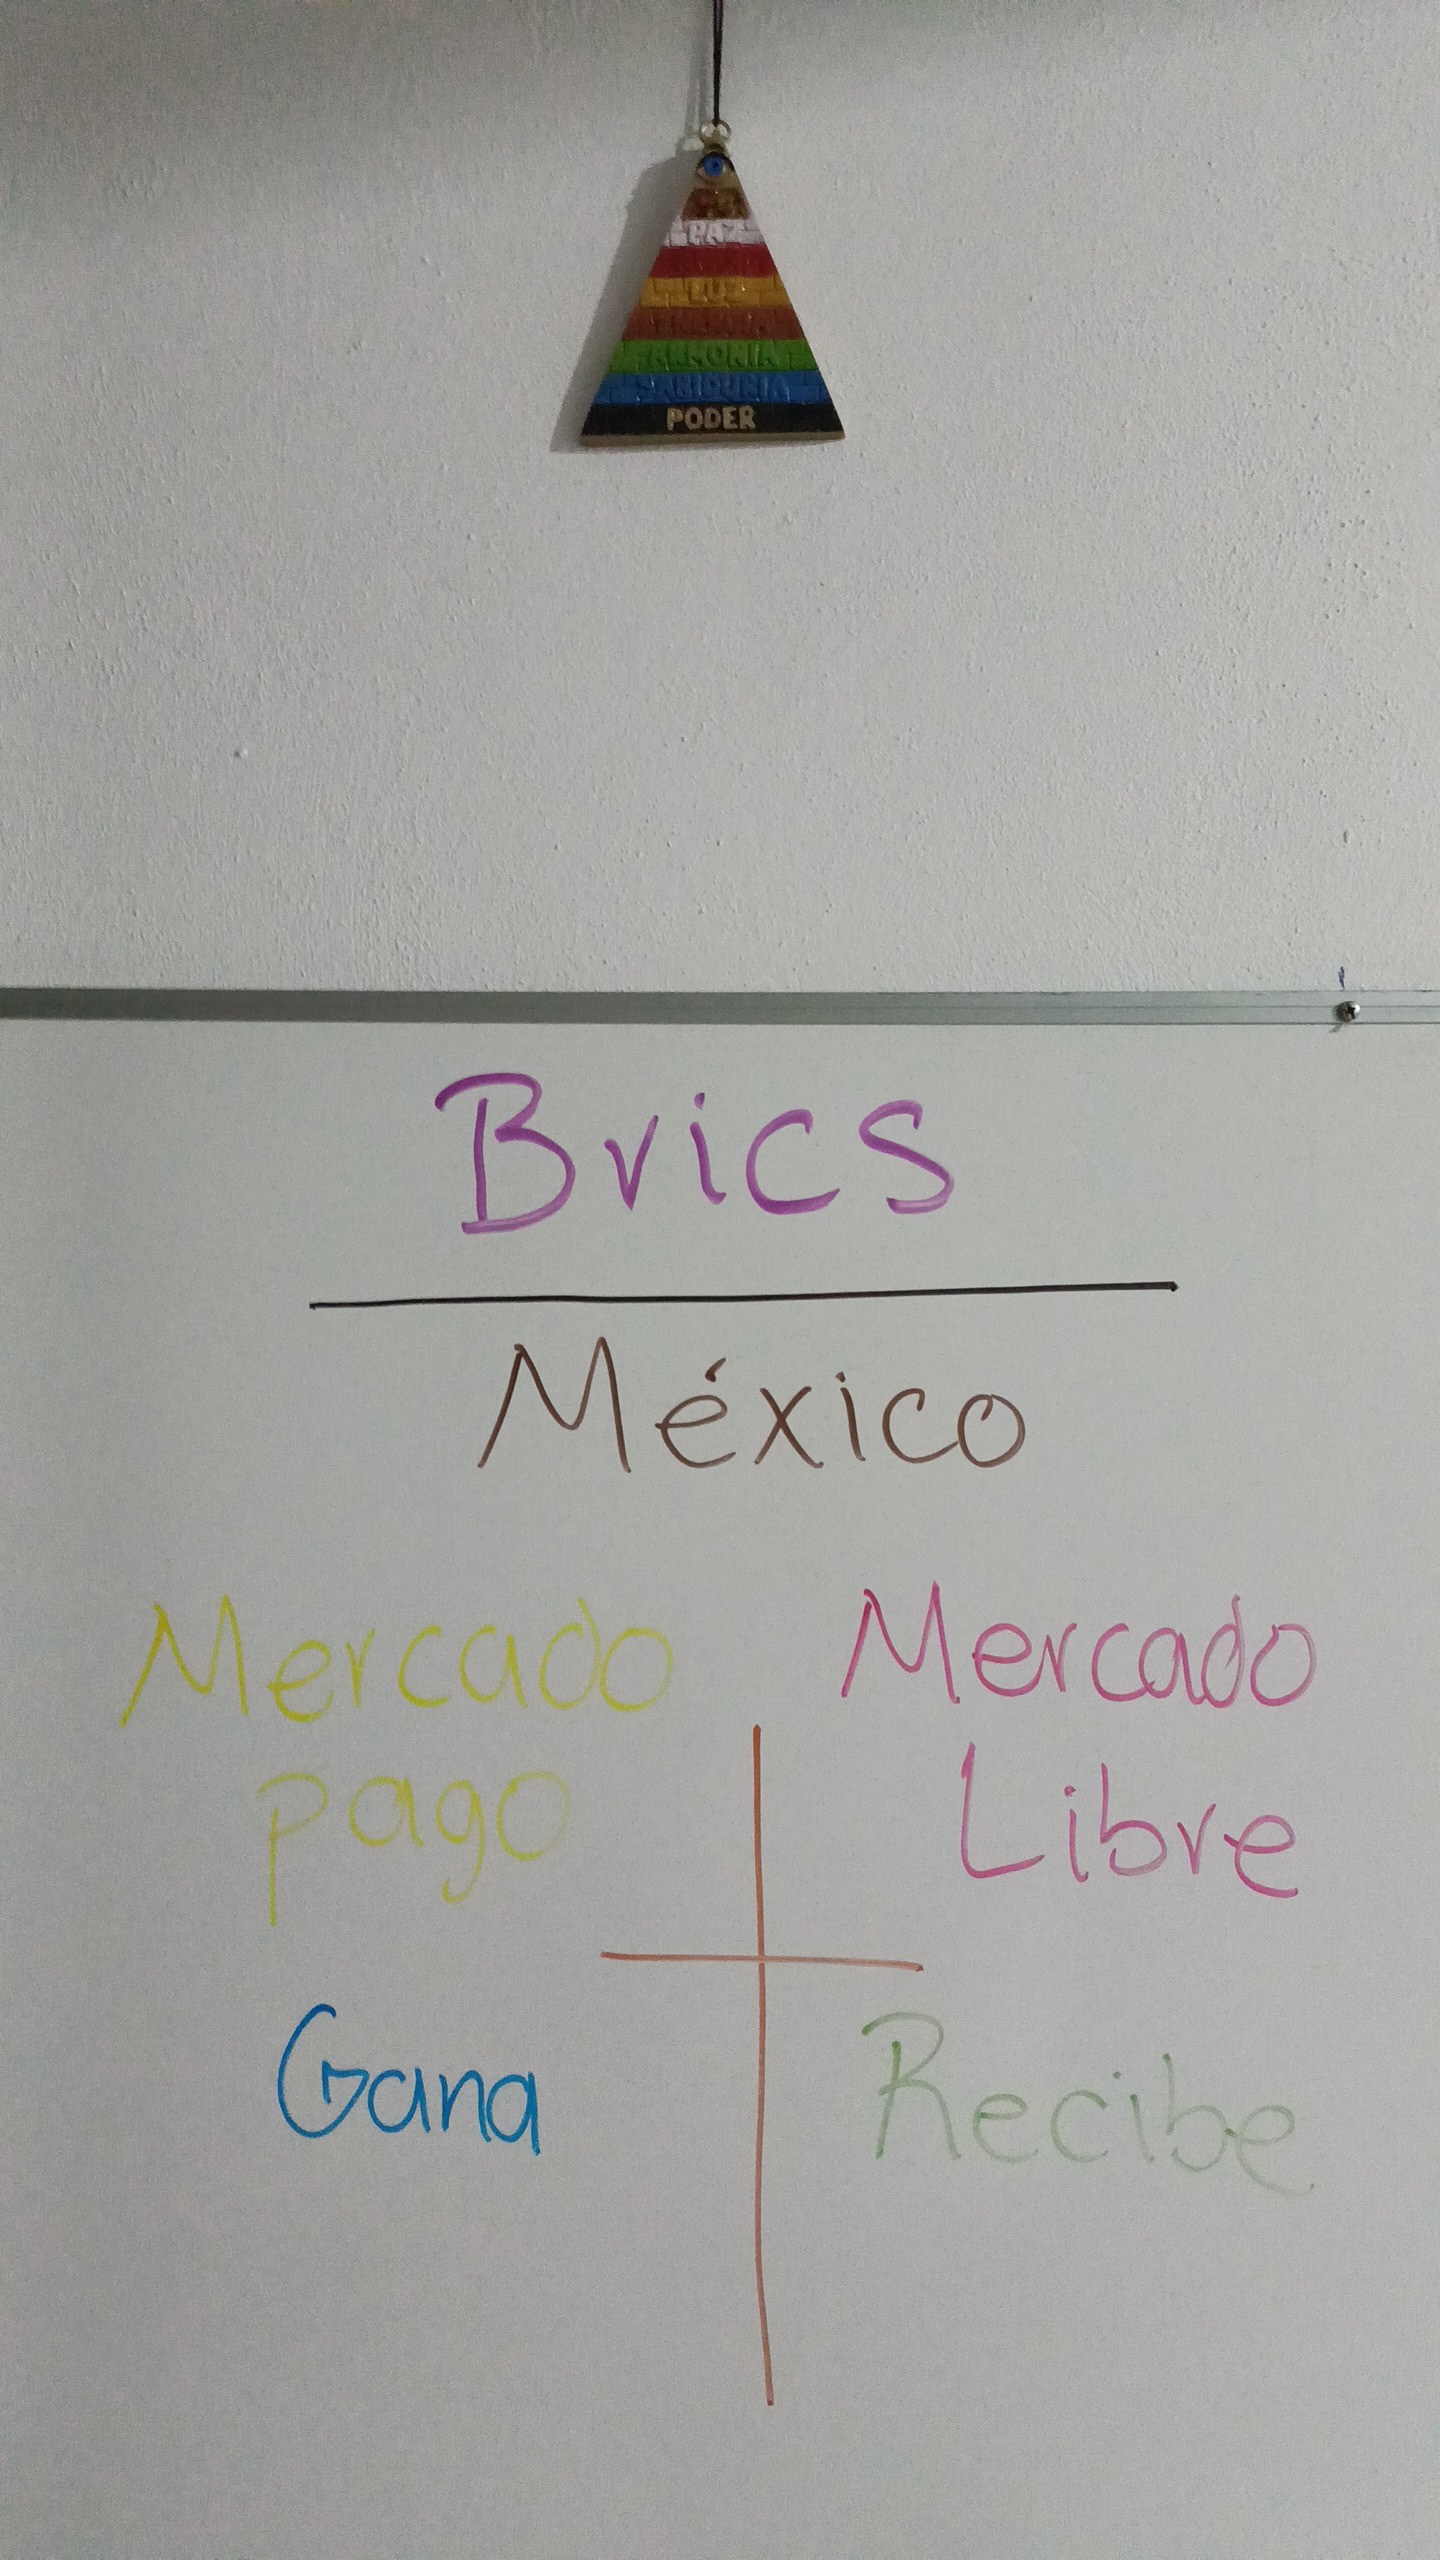 PAZ
LUZ
ARMONIA
SABIDURIA
PODER
Brics
México
Mercado pago
Mercado Libre
Gana
Recibe